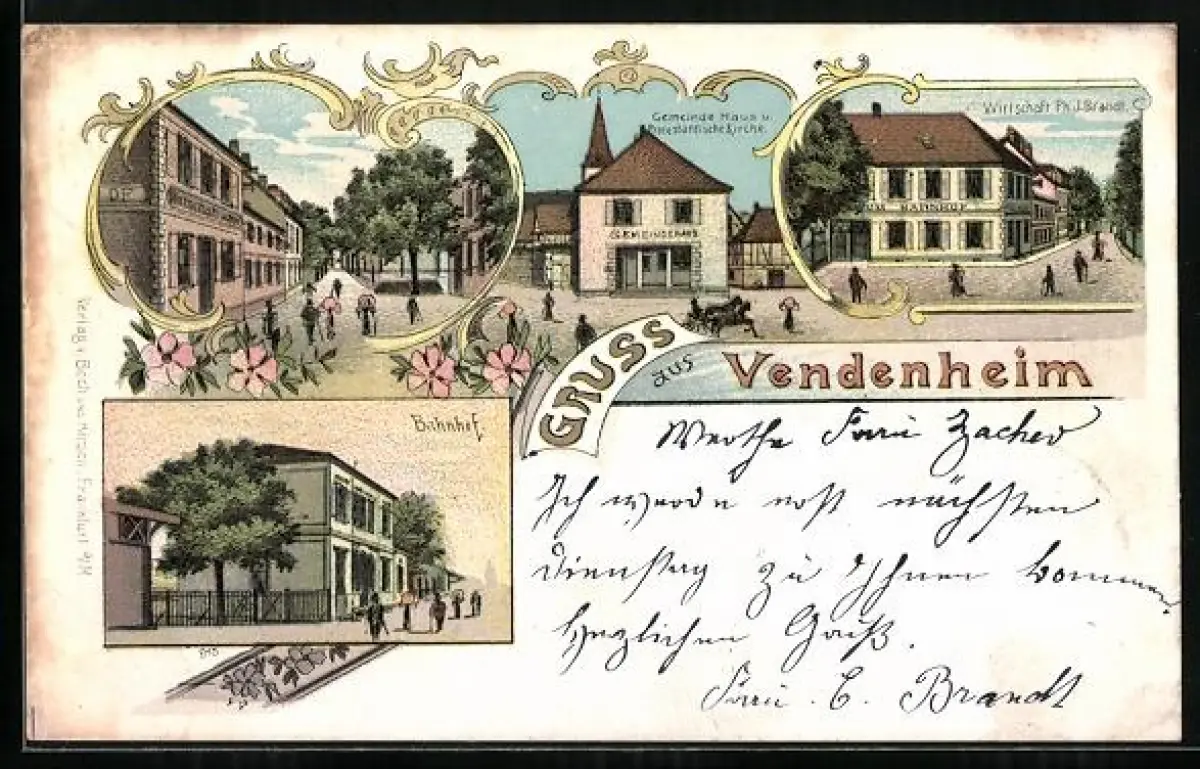 Gemeinde Haus u.
Protestantische Kirche.
Wirtschaft Ph. J. Brandt.
GEMEINDEHAUS
ZUM BAHNHOF
GRUSS
aus
Vendenheim
Bahnhof
Werthe Frau Zacher
Ich werde erst nächsten
Dienstag zu Ihnen kommen
Herzlichen Gruß.
Frau. C. Brandt
Frankfurt a/M